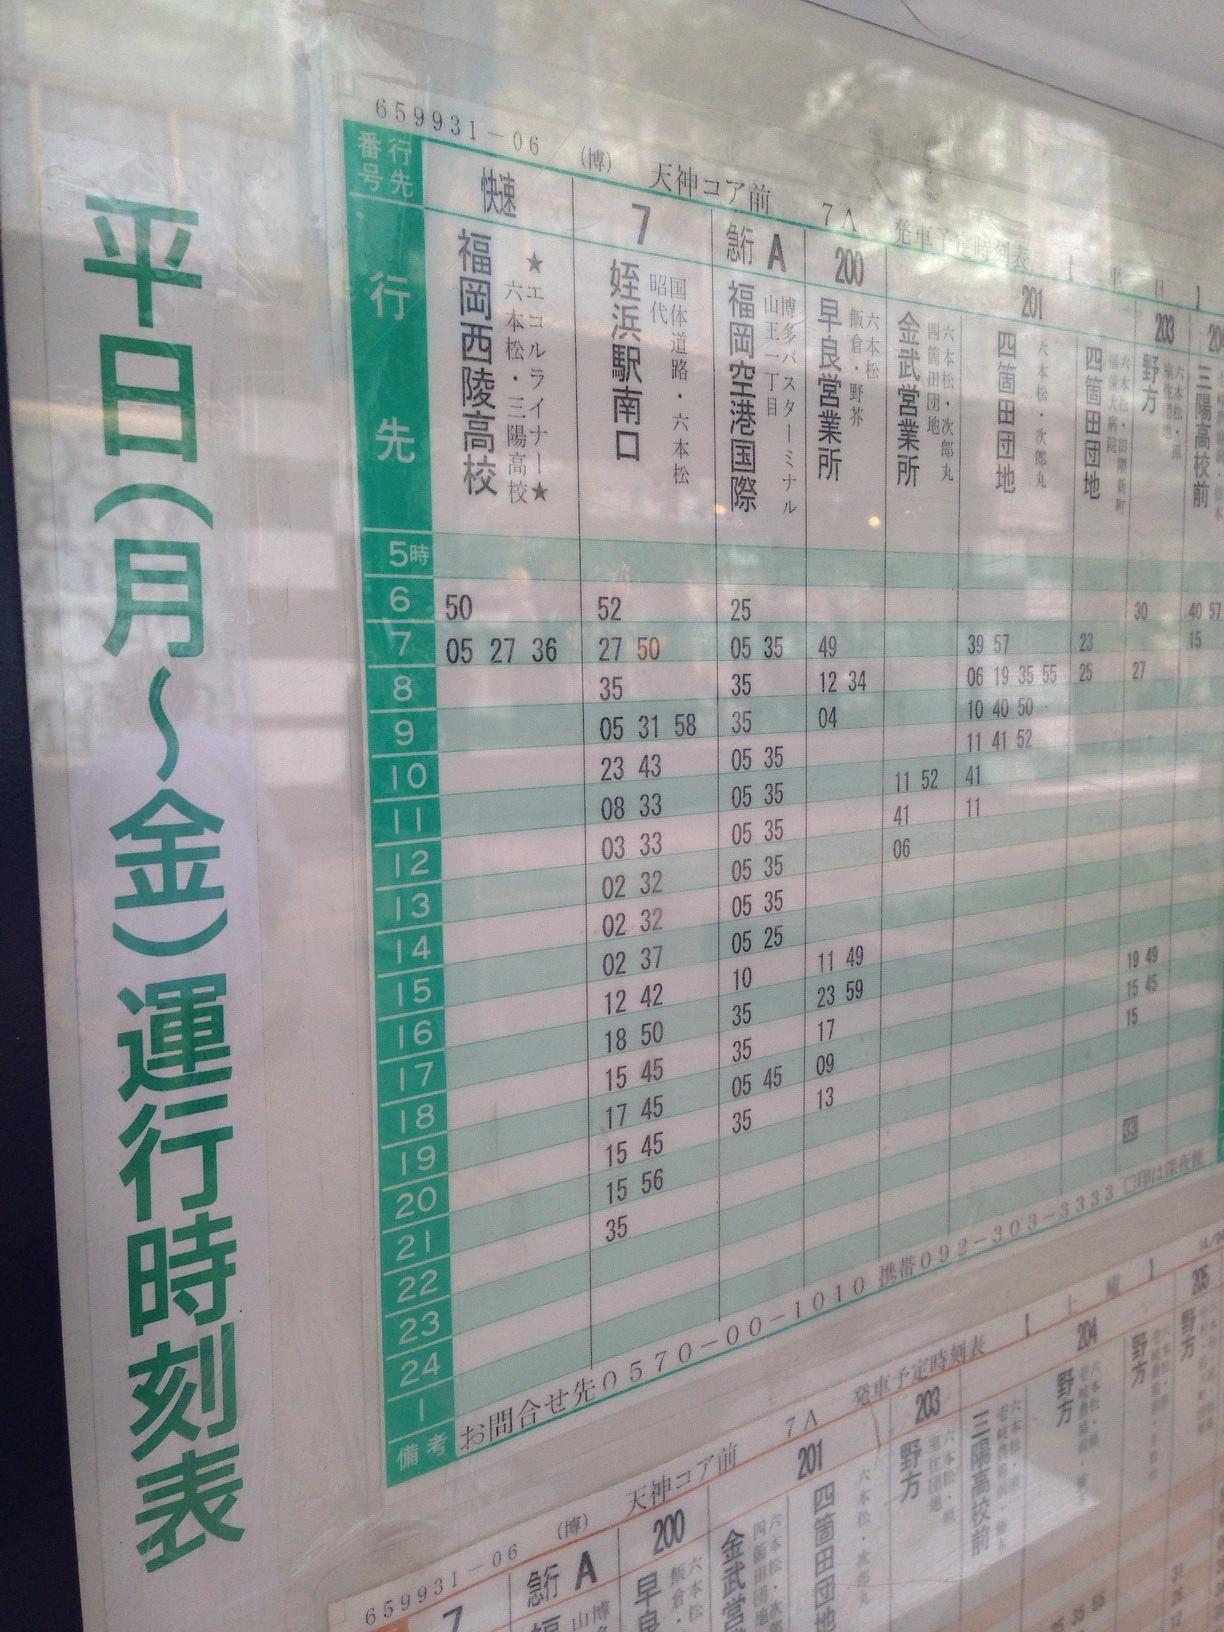 平日(月〜金)運行時刻表
659931-06 (博) 天神コア前 7A 発車予定時刻表
行先番号 快速 7 急行 A 200 201 203
行先
★エコルライナー★
六本松・三陽高校
福岡西陵高校
国体道路・六本松
昭代
姪浜駅南口
博多バスターミナル
山王一丁目
福岡空港国際
六本松
飯倉・野芥
早良営業所
六本松・次郎丸
四箇田団地
金武営業所
六本松・次郎丸
四箇田団地
四箇田団地
野方
三陽高校前
5時
6 50 52 25 30 40 57
7 05 27 36 27 50 05 35 49 39 57 23 15
8 35 35 12 34 06 19 35 55 25 27
9 05 31 58 35 04 10 40 50
10 23 43 05 35 11 41 52
11 08 33 05 35 11 52 41
12 03 33 05 35 41 11
13 02 32 05 35 06
14 02 32 05 35
15 02 37 05 25
16 12 42 10 11 49 19 49
17 18 50 35 23 59 15 45
18 15 45 35 17 15
19 17 45 05 45 09
20 15 45 35 13
21 15 56 33
22 35
23
24
1
備考 お問合せ先0570-00-1010 携帯092-303-3333 □印は深夜便
659931-06 (博) 天神コア前 7A 発車予定時刻表
7 急行 A 200 201 203 204 205
六本松
飯倉・
早良
六本松・次郎
四箇田団地
金武営
六本松・次郎丸
四箇田団地
野方
三陽高校前
野方
野方
野方